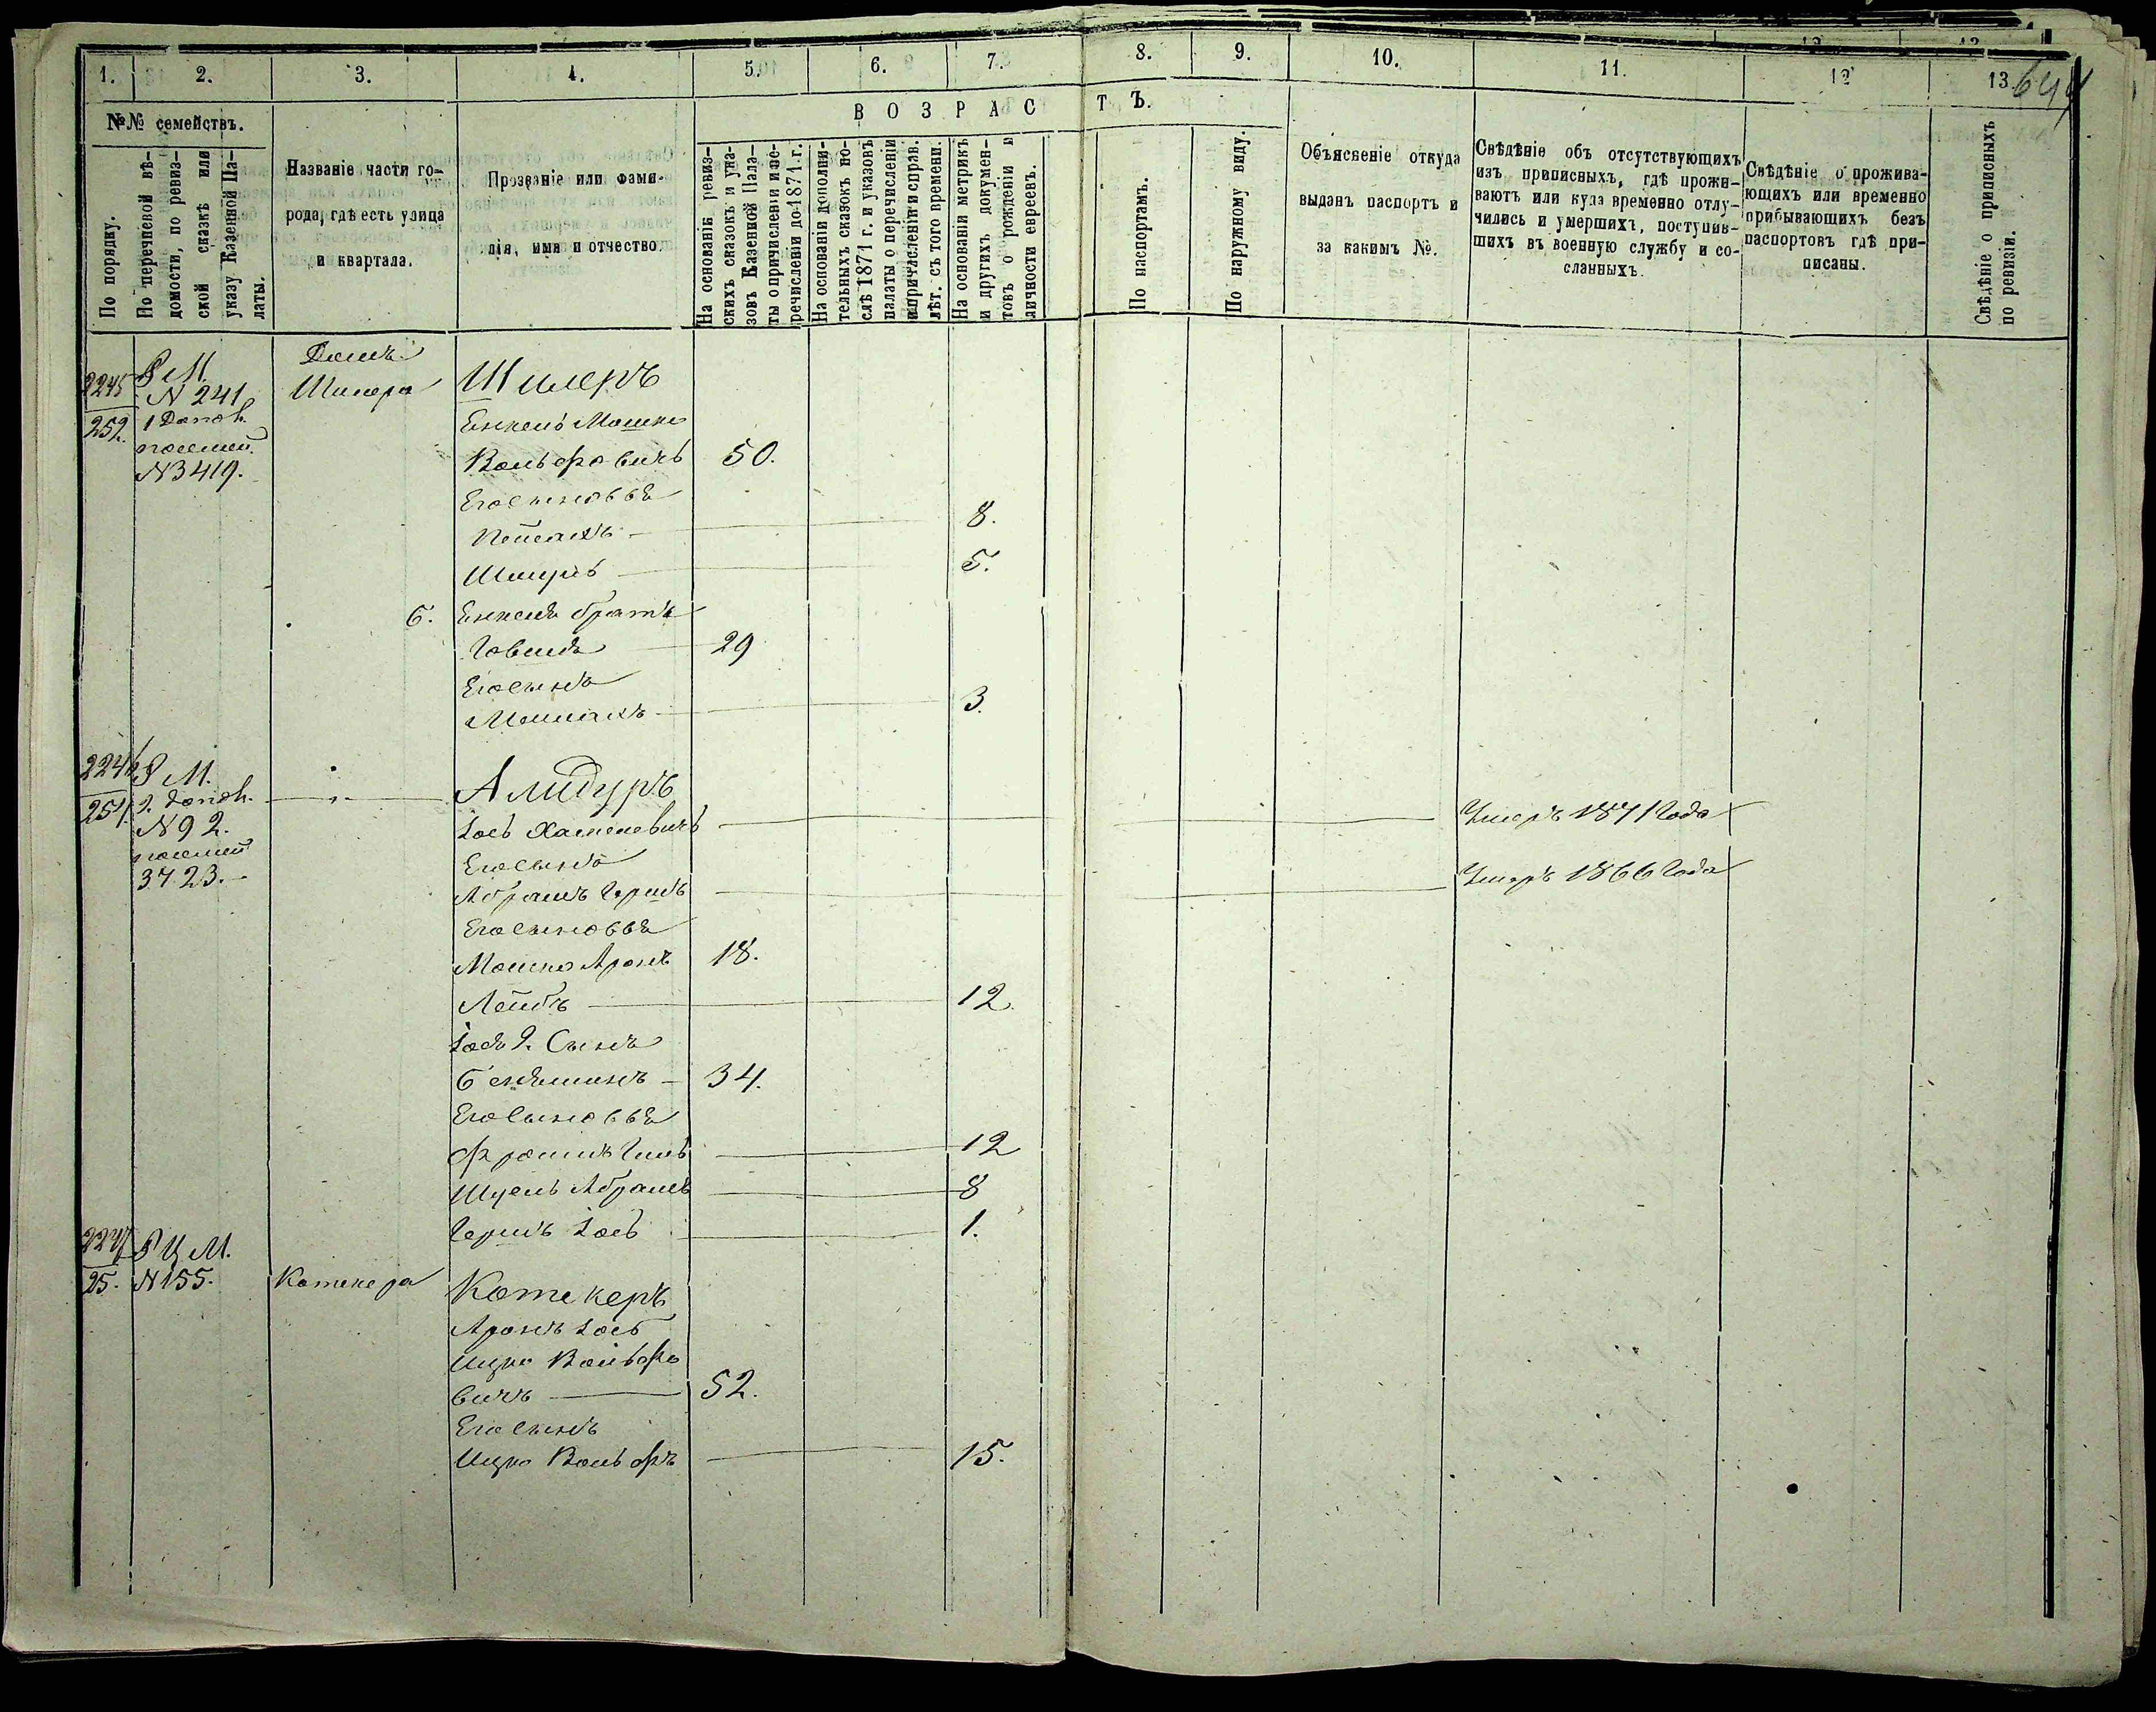 1. 2. 3. 4. 5. 6. 7. 8. 9. 10. 11. 12 13.
644
В О З Р А С Т Ъ.
№№ семействъ.
По порядку.
По перечневой вѣ-
домости, по ревиз-
ской сказкѣ или
указу Казенной Па-
латы.
Названіе части го-
рода, гдѣ есть улица
и квартала.
Прозваніе или фами-
лія, имя и отчество.
На основаніи ревиз-
скихъ сказокъ и ука-
зовъ Казенной Пала-
ты о причисленіи и пе-
речисленіи до 1871 г.
На основаніи дополни-
тельныхъ сказокъ по-
слѣ 1871 г. и указовъ
палаты о перечисленіи
и причисленіи и справ.
лѣт. съ того времени.
На основаніи метрикъ
и другихъ докумен-
товъ о рожденіи и
личности евреевъ.
По паспортамъ.
По наружному виду.
Объясненіе откуда
выданъ паспортъ и
за какимъ №.
Свѣдѣніе объ отсутствующихъ
изъ приписныхъ, гдѣ прожи-
ваютъ или куда временно отлу-
чились и умершихъ, поступив-
шихъ въ военную службу и со-
сланныхъ.
Свѣдѣніе о прожива-
ющихъ или временно
прибывающихъ безъ
паспортовъ гдѣ при-
писаны.
Свѣдѣніе о приписныхъ
по ревизіи.
Домъ
2245 М. Шилера Шилеръ
N 241
252. 1 Допол. Енкель Мошко
посемей. Вольфовичъ 50.
N 3419.
Его сыновья
Пейсахъ 8.
Шмуль 5.
Енкеля братъ
Говшія 29
Его сынъ
Мошко 3.
2246 М. Алидуръ
251 2. допол.
N 92. Іось Хаскелевичъ Умеръ 1871 Года
посемей Его сынъ
3723. Абрамъ Гершъ Умеръ 1866 Года
Его сыновья
Мошко Аронъ 18.
Лейбъ 12.
Іося 2. Сынъ
Беньяминъ 34.
Его Сыновья
Фроимъ 12
Шуель Абрамъ 8
Гершъ Іось 1.
2247 Ц М.
25. N 155. Котекера Котекеръ
Аронъ Іось
Ицко Вольфо
вичъ 52.
Его сынъ
Ицко Вольфъ 15.